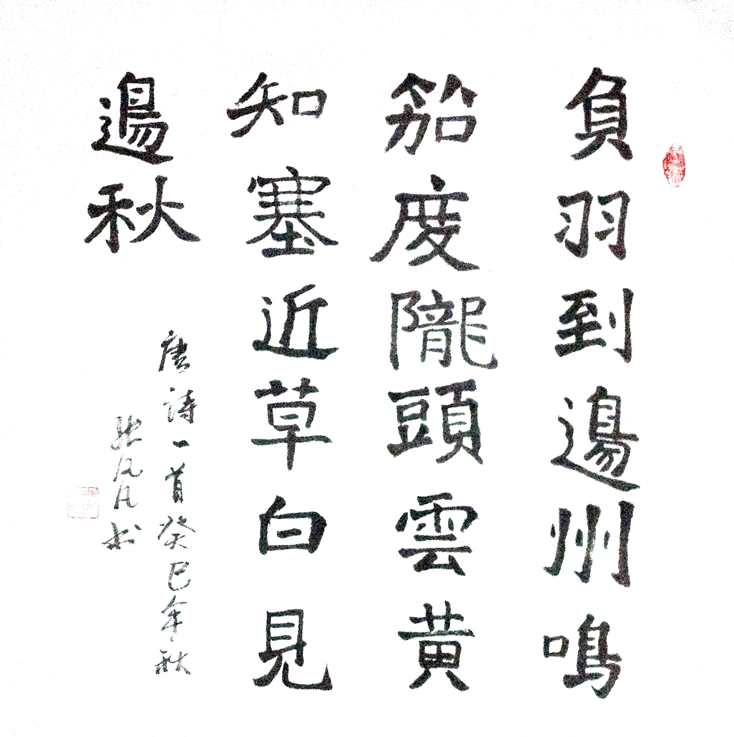 負羽到邊州鳴
笳度隴頭雲黃
知塞近草白見
邊秋
唐詩一首癸巳年秋
張凡凡书